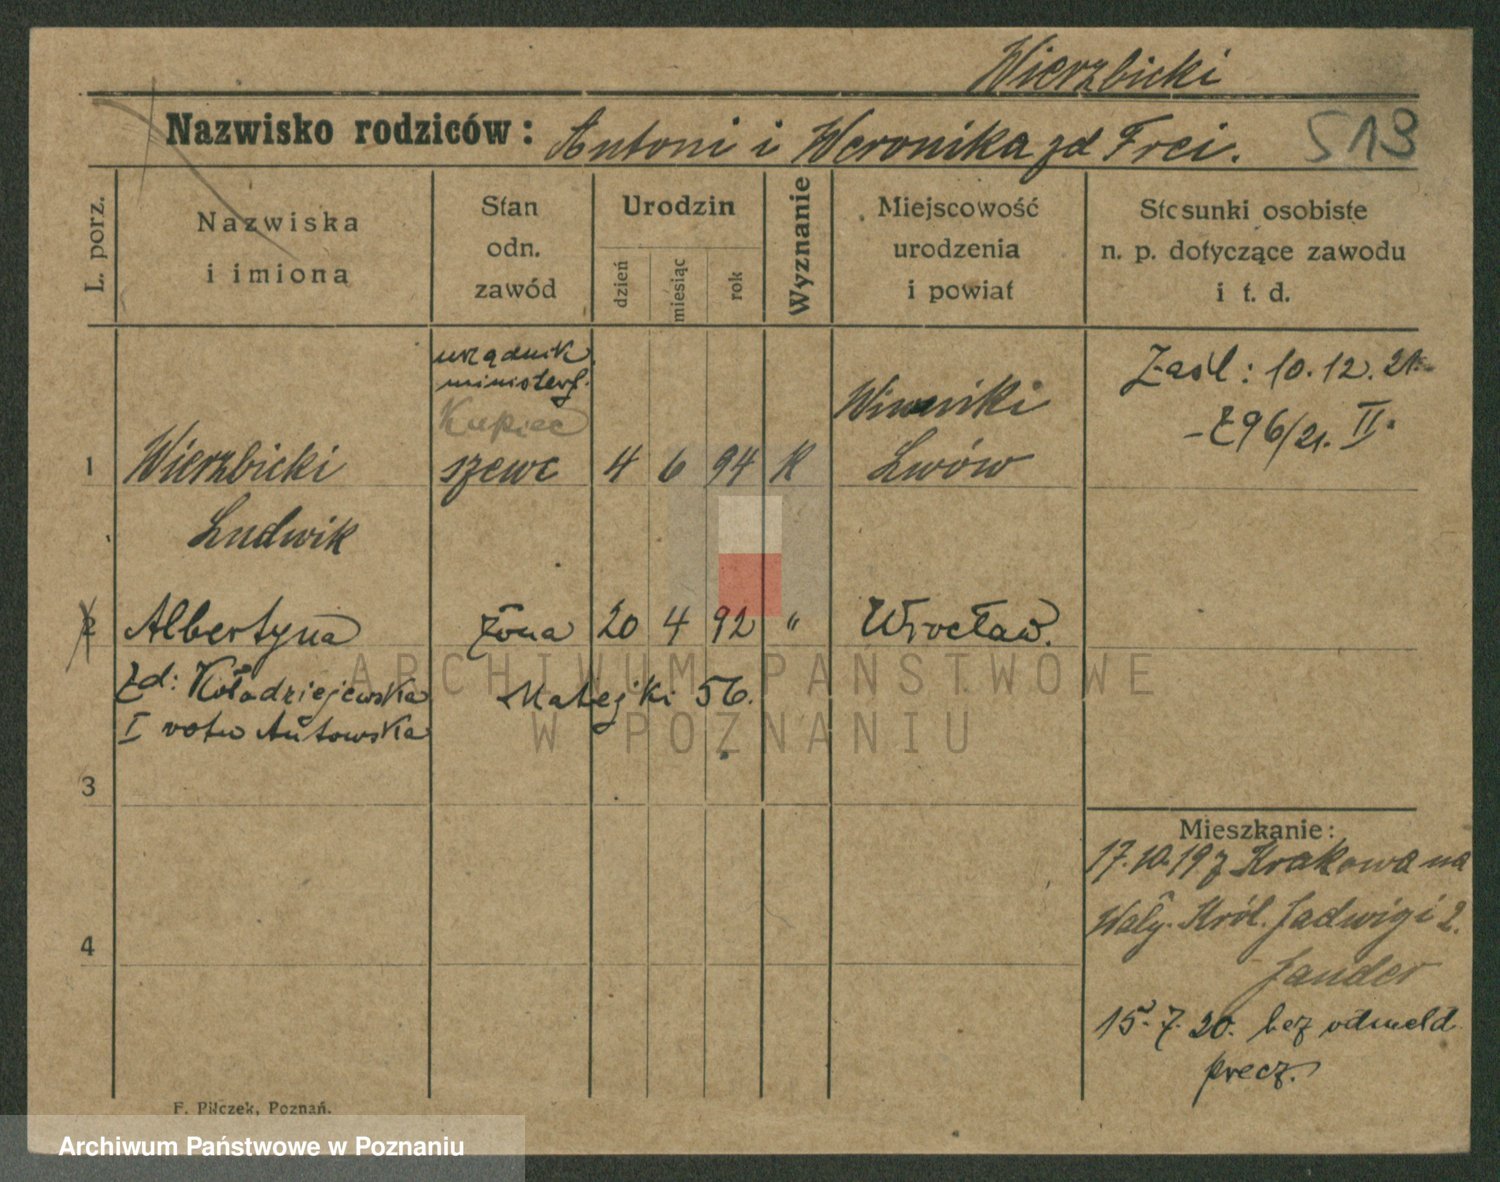 Wierzbicki
Nazwisko rodziców: Antoni i Weronika zd Frei. 513
L. porz.
Nazwiska
i imiona
Stan
odn.
zawód
Urodzin
dzień
miesiąc
rok
Wyznanie
Miejscowość
urodzenia
i powiat
Stosunki osobiste
n. p. dotyczące zawodu
i t. d.
urzędnik
Kupiec
1 Wierzbicki szewc 4 6 94 K Winniki Lwów
Ludwik
Zaśl: 10.12.21.
96/21. II.
2 Albertyna żona 20 4 92 " Wrocław.
zd: Kołodziejewska Matejki 56.
I voto Antowska
3
4
Mieszkanie:
17.10.19 z Krakowa na
Wały Król. Jadwigi 2.
Jander
15.7.20. bez odmeld
precz.
F. Pilczek, Poznań.
ARCHIWUM PAŃSTWOWE
W POZNANIU
Archiwum Państwowe w Poznaniu